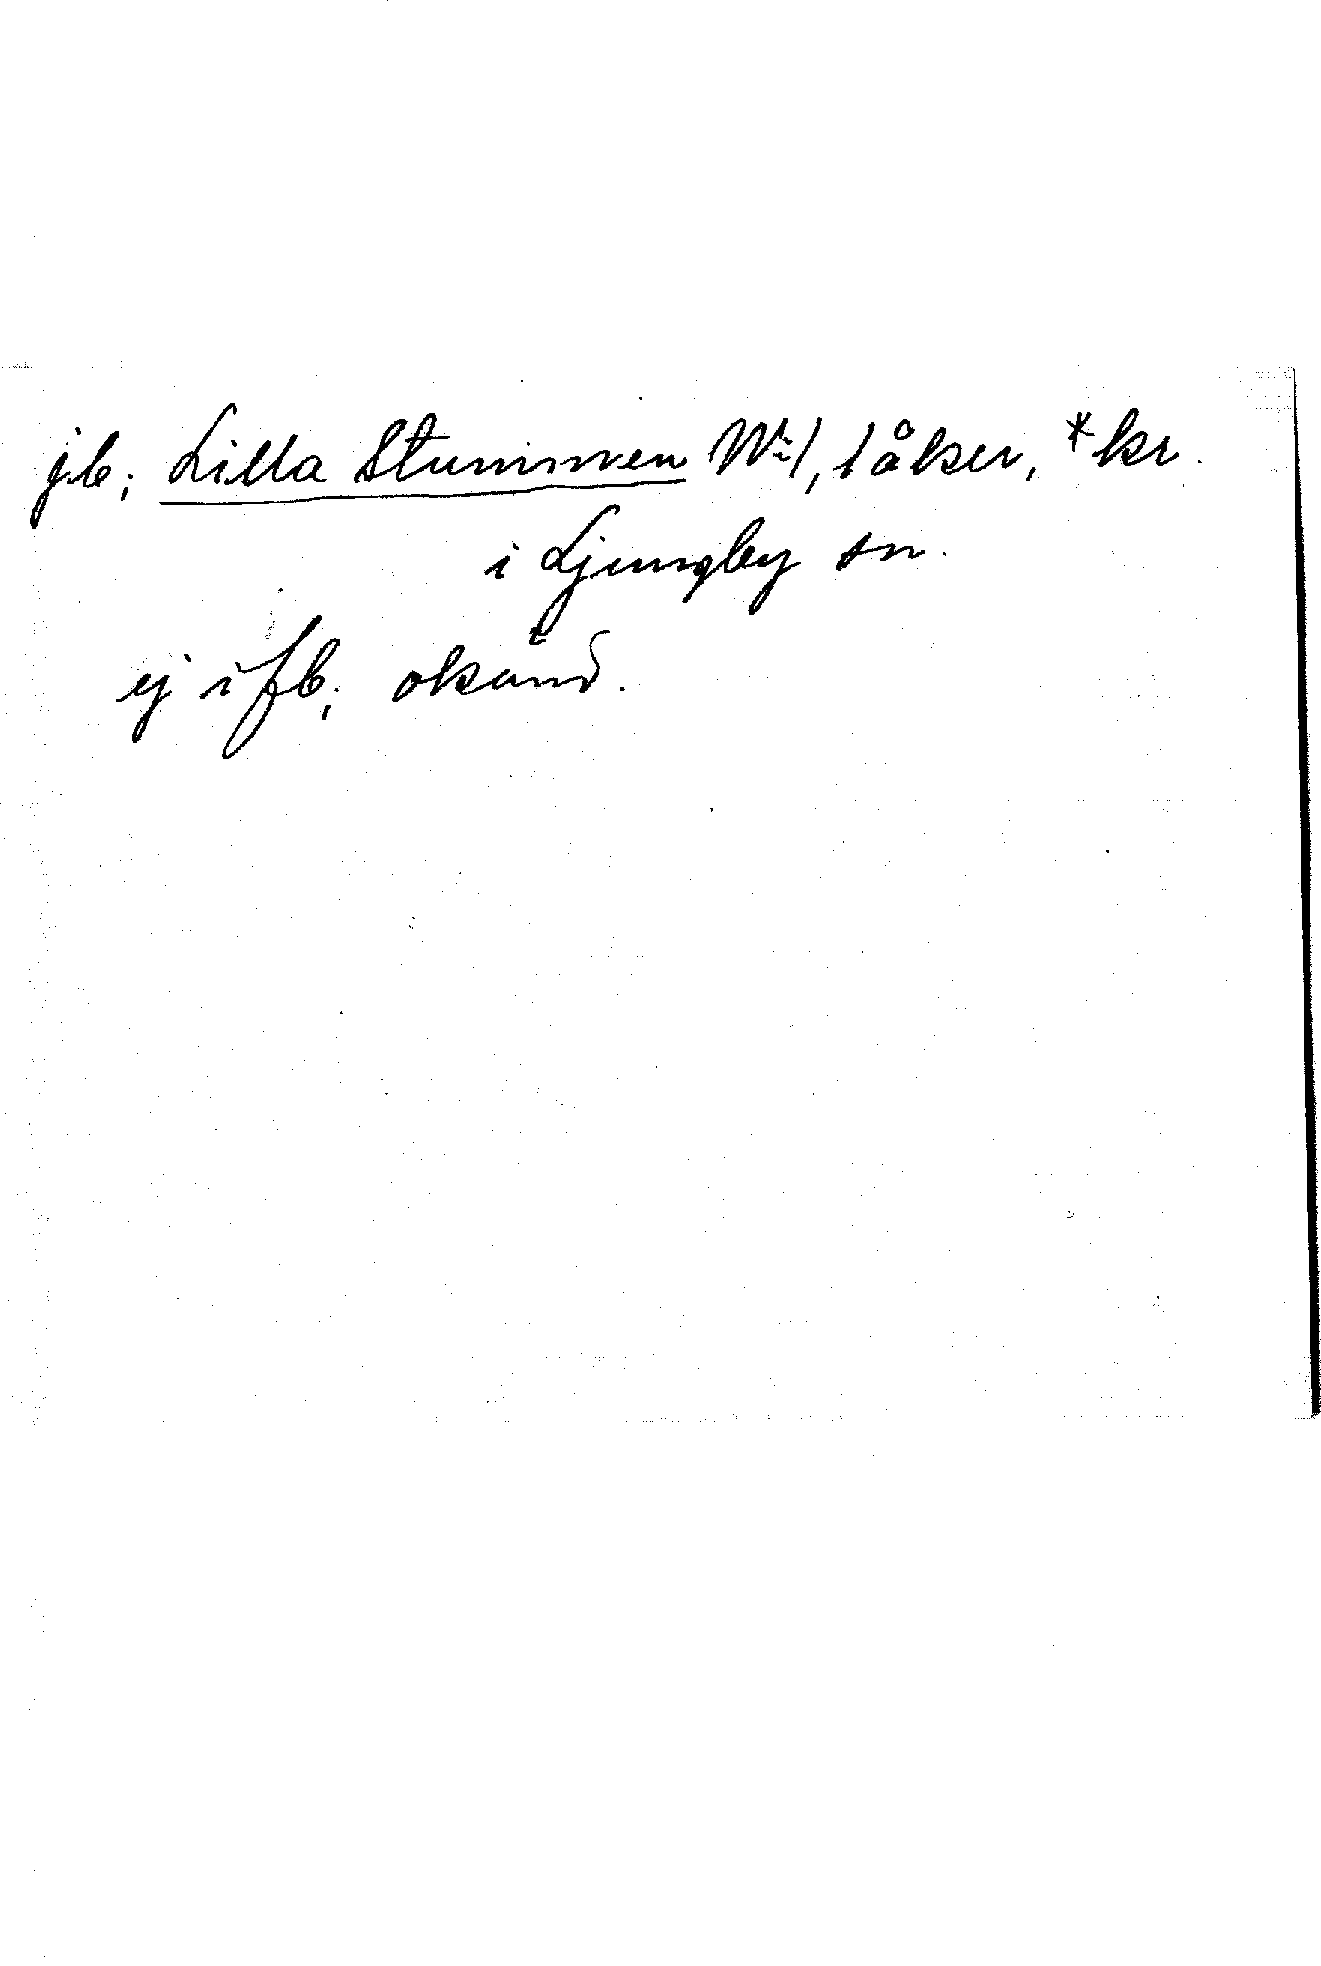 jb; Lilla Stummen N:1, 1 åker, *kr.
i Ljungby sn.
ej i fb; okänd.